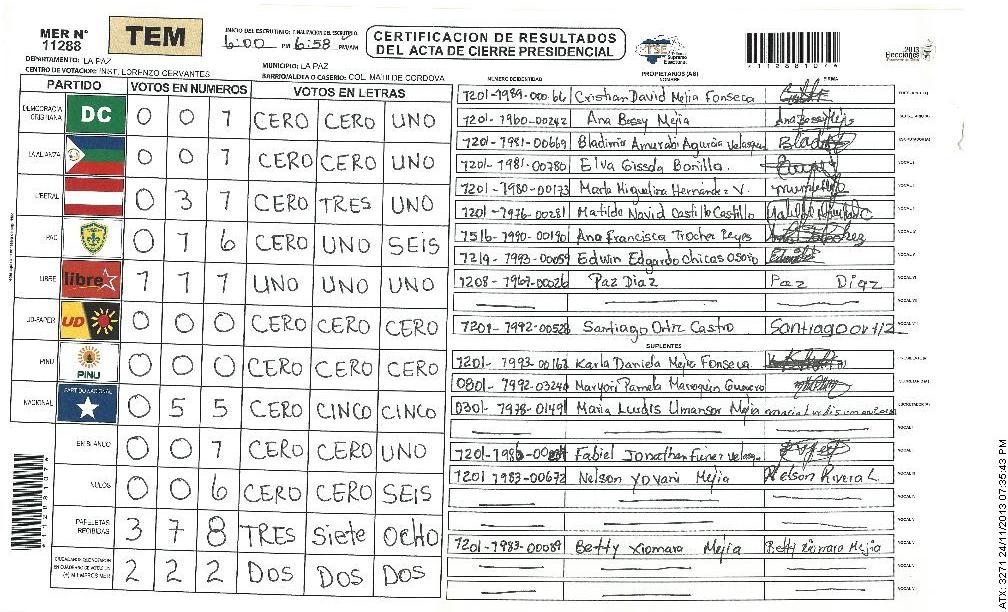 MER N° 11288
TEM
INICIO DEL ESCRUTINIO: FINALIZACION DEL ESCRUTINIO
6:00 PM 6:58 PM/AM
CERTIFICACION DE RESULTADOS
DEL ACTA DE CIERRE PRESIDENCIAL
TSE Tribunal Supremo Electoral
Elecciones 2013
112881074
DEPARTAMENTO: LA PAZ
MUNICIPIO: LA PAZ
CENTRO DE VOTACION: INST. LORENZO CERVANTES
BARRIO/ALDEA O CASERIO: COL. MAHI DE CORDOVA
PARTIDO VOTOS EN NUMEROS VOTOS EN LETRAS
DEMOCRACIA CRISTIANA DC 0 0 1 CERO CERO UNO
LA ALIANZA 0 0 1 CERO CERO UNO
LIBERAL 0 3 1 CERO TRES UNO
PAC 0 1 6 CERO UNO SEIS
LIBRE libre 1 1 1 UNO UNO UNO
UD-FAPER UD 0 0 0 CERO CERO CERO
PINU PINU 0 0 0 CERO CERO CERO
NACIONAL PARTIDO NACIONAL 0 5 5 CERO CINCO CINCO
EN BLANCO 0 0 1 CERO CERO UNO
NULOS 0 0 6 CERO CERO SEIS
PAPELETAS RECIBIDAS 3 7 8 TRES Siete OCHO
2 2 2 DOS DOS DOS
NUMERO DE IDENTIDAD PROPIETARIOS (AS) NOMBRE FIRMA
1201-1989-00066 Cristian David Mejia Fonseca
1201-1960-00242 Ana Bessy Mejia
1201-1981-00669 Bladimir Amurabi Aguroa Velasquez
1201-1981-00780 Elva Gissela Bonilla
1201-1980-00173 Marta Higuelina Hernández V.
1201-1976-00281 Matilde Navid Castillo Castillo
1516-1990-00190 Ana Francisca Trochez Reyes
1219-1993-00059 Edwin Edgardo Chicas Osorio
1208-1967-00026 Paz Diaz Paz Diaz
1201-1992-00528 Santiago Ortiz Castro Santiago ortiz
SUPLENTES
1201-1993-00162 Karla Daniela Mejia Fonseca
0801-1992-03240 Maryori Pamela Marroquin
0301-1978-01491 Maria Lurdis Umansor Mejia maria Lurdis umansor
Fabiel Jonathan Funez Velasquez
1201 1983-00672 Nelson Yovani Mejia Nelson Rivera L.
1201-1983-00089 Betty Xiomara Mejia Betty Xiomara Mejia
ATX 3271 24/11/2013 07:35:43 PM